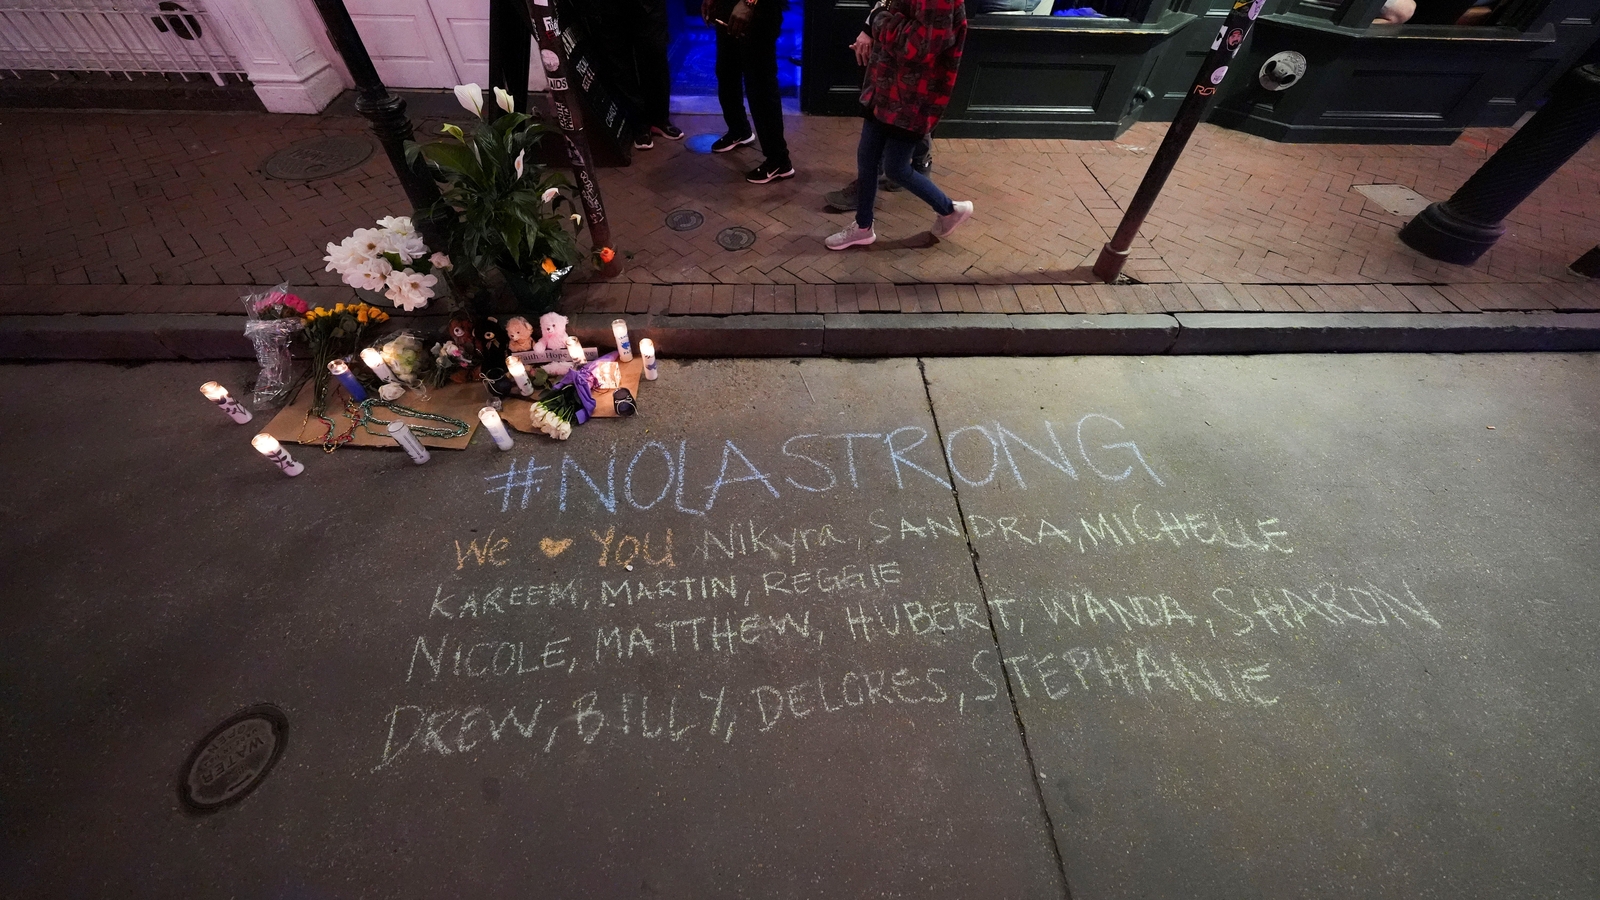 AIDS
Faith Hope
#NOLASTRONG
We ❤ YOU Nikyra, SANDRA, MICHELLE
KAREEM, MARTIN, REGGIE
NICOLE, MATTHEW, HUBERT, WANDA, SHARON
DREW, BILLY, DELORES, STEPHANIE
WATER